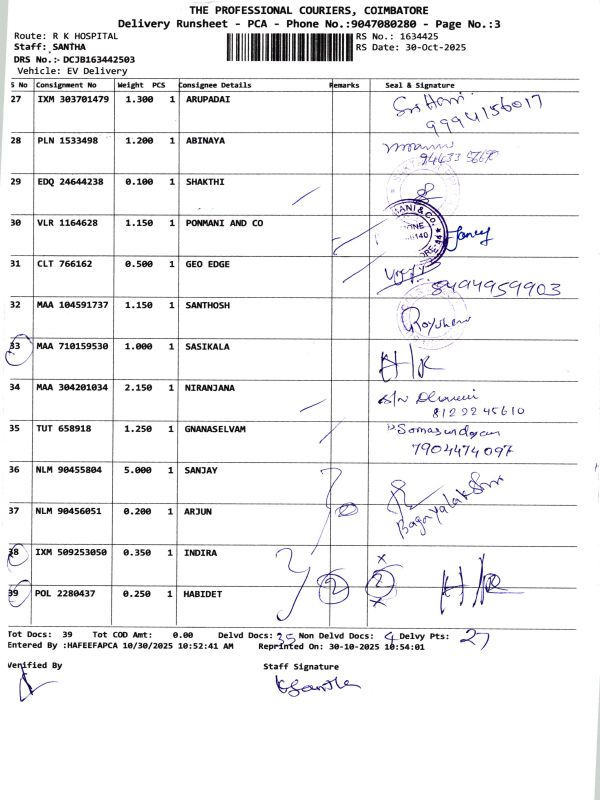 THE PROFESSIONAL COURIERS, COIMBATORE
Delivery Runsheet - PCA - Phone No.:9047080280 - Page No.:3
Route: R K HOSPITAL RS No.: 1634425
Staff: SANTHA RS Date: 30-Oct-2025
DRS No.:- DCJB163442503
Vehicle: EV Delivery
S No Consignment No Weight PCS Consignee Details Remarks Seal & Signature
27 IXM 303701479 1.300 1 ARUPADAI Sri Hari
9994156017
28 PLN 1533498 1.200 1 ABINAYA
29 EDQ 24644238 0.100 1 SHAKTHI
30 VLR 1164628 1.150 1 PONMANI AND CO MANI & CO.
31 CLT 766162 0.500 1 GEO EDGE
8494959903
32 MAA 104591737 1.150 1 SANTHOSH
33 MAA 710159530 1.000 1 SASIKALA H/R
34 MAA 304201034 2.150 1 NIRANJANA
8122245610
35 TUT 658918 1.250 1 GNANASELVAM Somasundaram
7904474097
36 NLM 90455804 5.000 1 SANJAY
37 NLM 90456051 0.200 1 ARJUN
38 IXM 509253050 0.350 1 INDIRA
39 POL 2280437 0.250 1 HABIDET 2 2 H/R
Tot Docs: 39 Tot COD Amt: 0.00 Delvd Docs: 35 Non Delvd Docs: 4 Delvy Pts: 27
Entered By :HAFEEFAPCA 10/30/2025 10:52:41 AM Reprinted On: 30-10-2025 10:54:01
Verified By Staff Signature
Santha